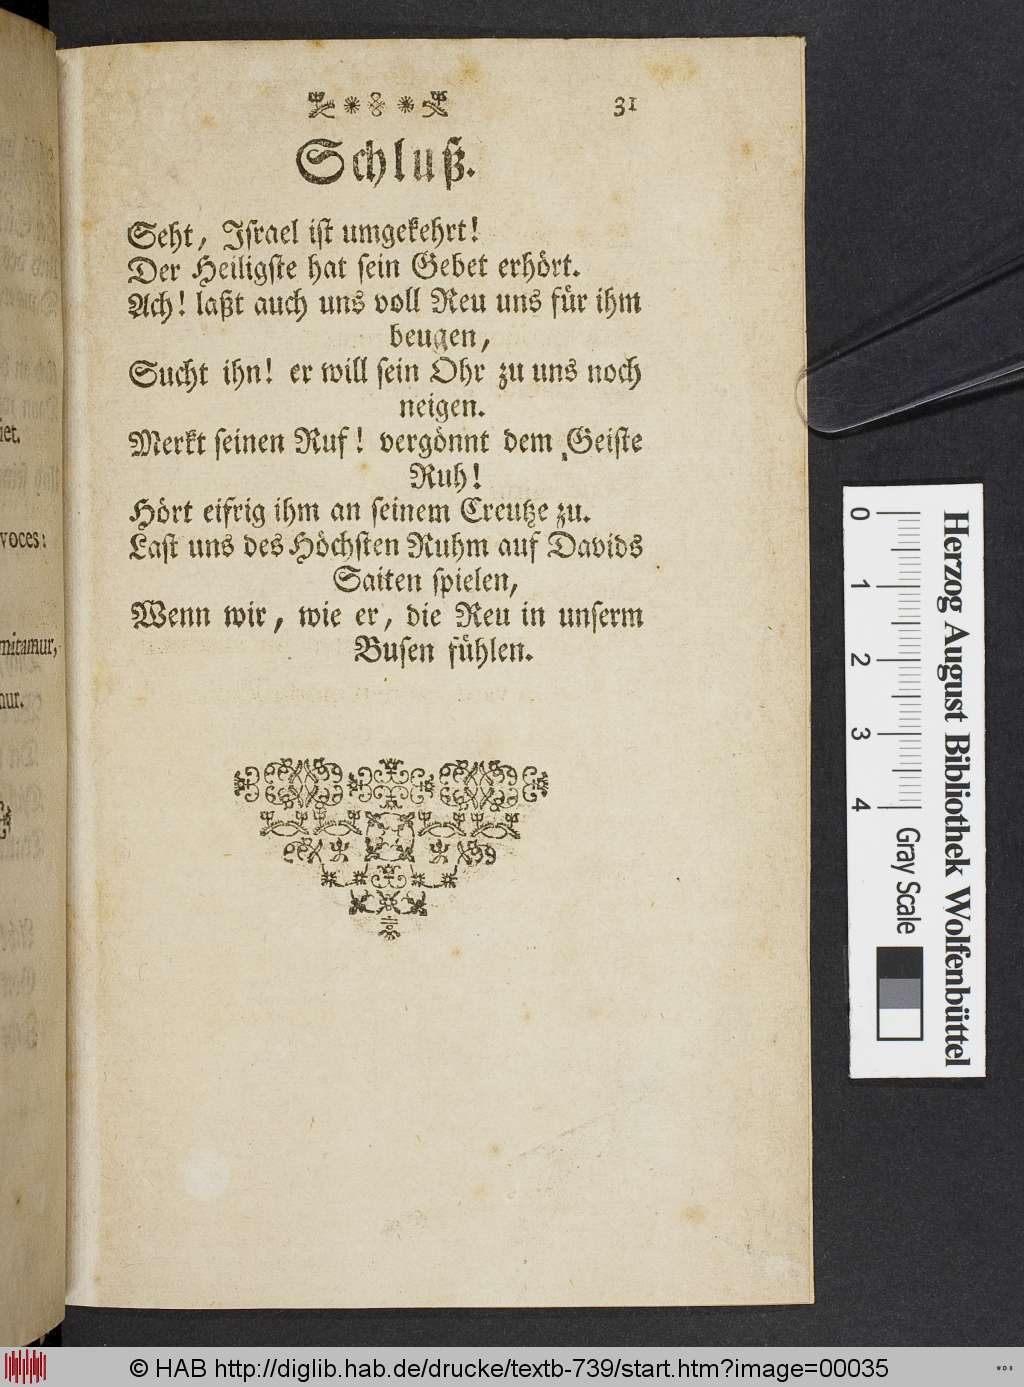 31
Schluß.
Seht, Israel ist umgekehrt!
Der Heiligste hat sein Gebet erhört.
Ach! laßt auch uns voll Reu uns für ihm
beugen,
Sucht ihn! er will sein Ohr zu uns noch
neigen.
Merkt seinen Ruf! vergönnt dem Geiste
Ruh!
Hört eifrig ihm an seinem Creutze zu.
Last uns des Höchsten Ruhm auf Davids
Saiten spielen,
Wenn wir, wie er, die Reu in unserm
Busen fühlen.
iet.
voces:
mitamur,
nur.
Herzog August Bibliothek Wolfenbüttel
0 1 2 3 4 Gray Scale
© HAB http://diglib.hab.de/drucke/textb-739/start.htm?image=00035